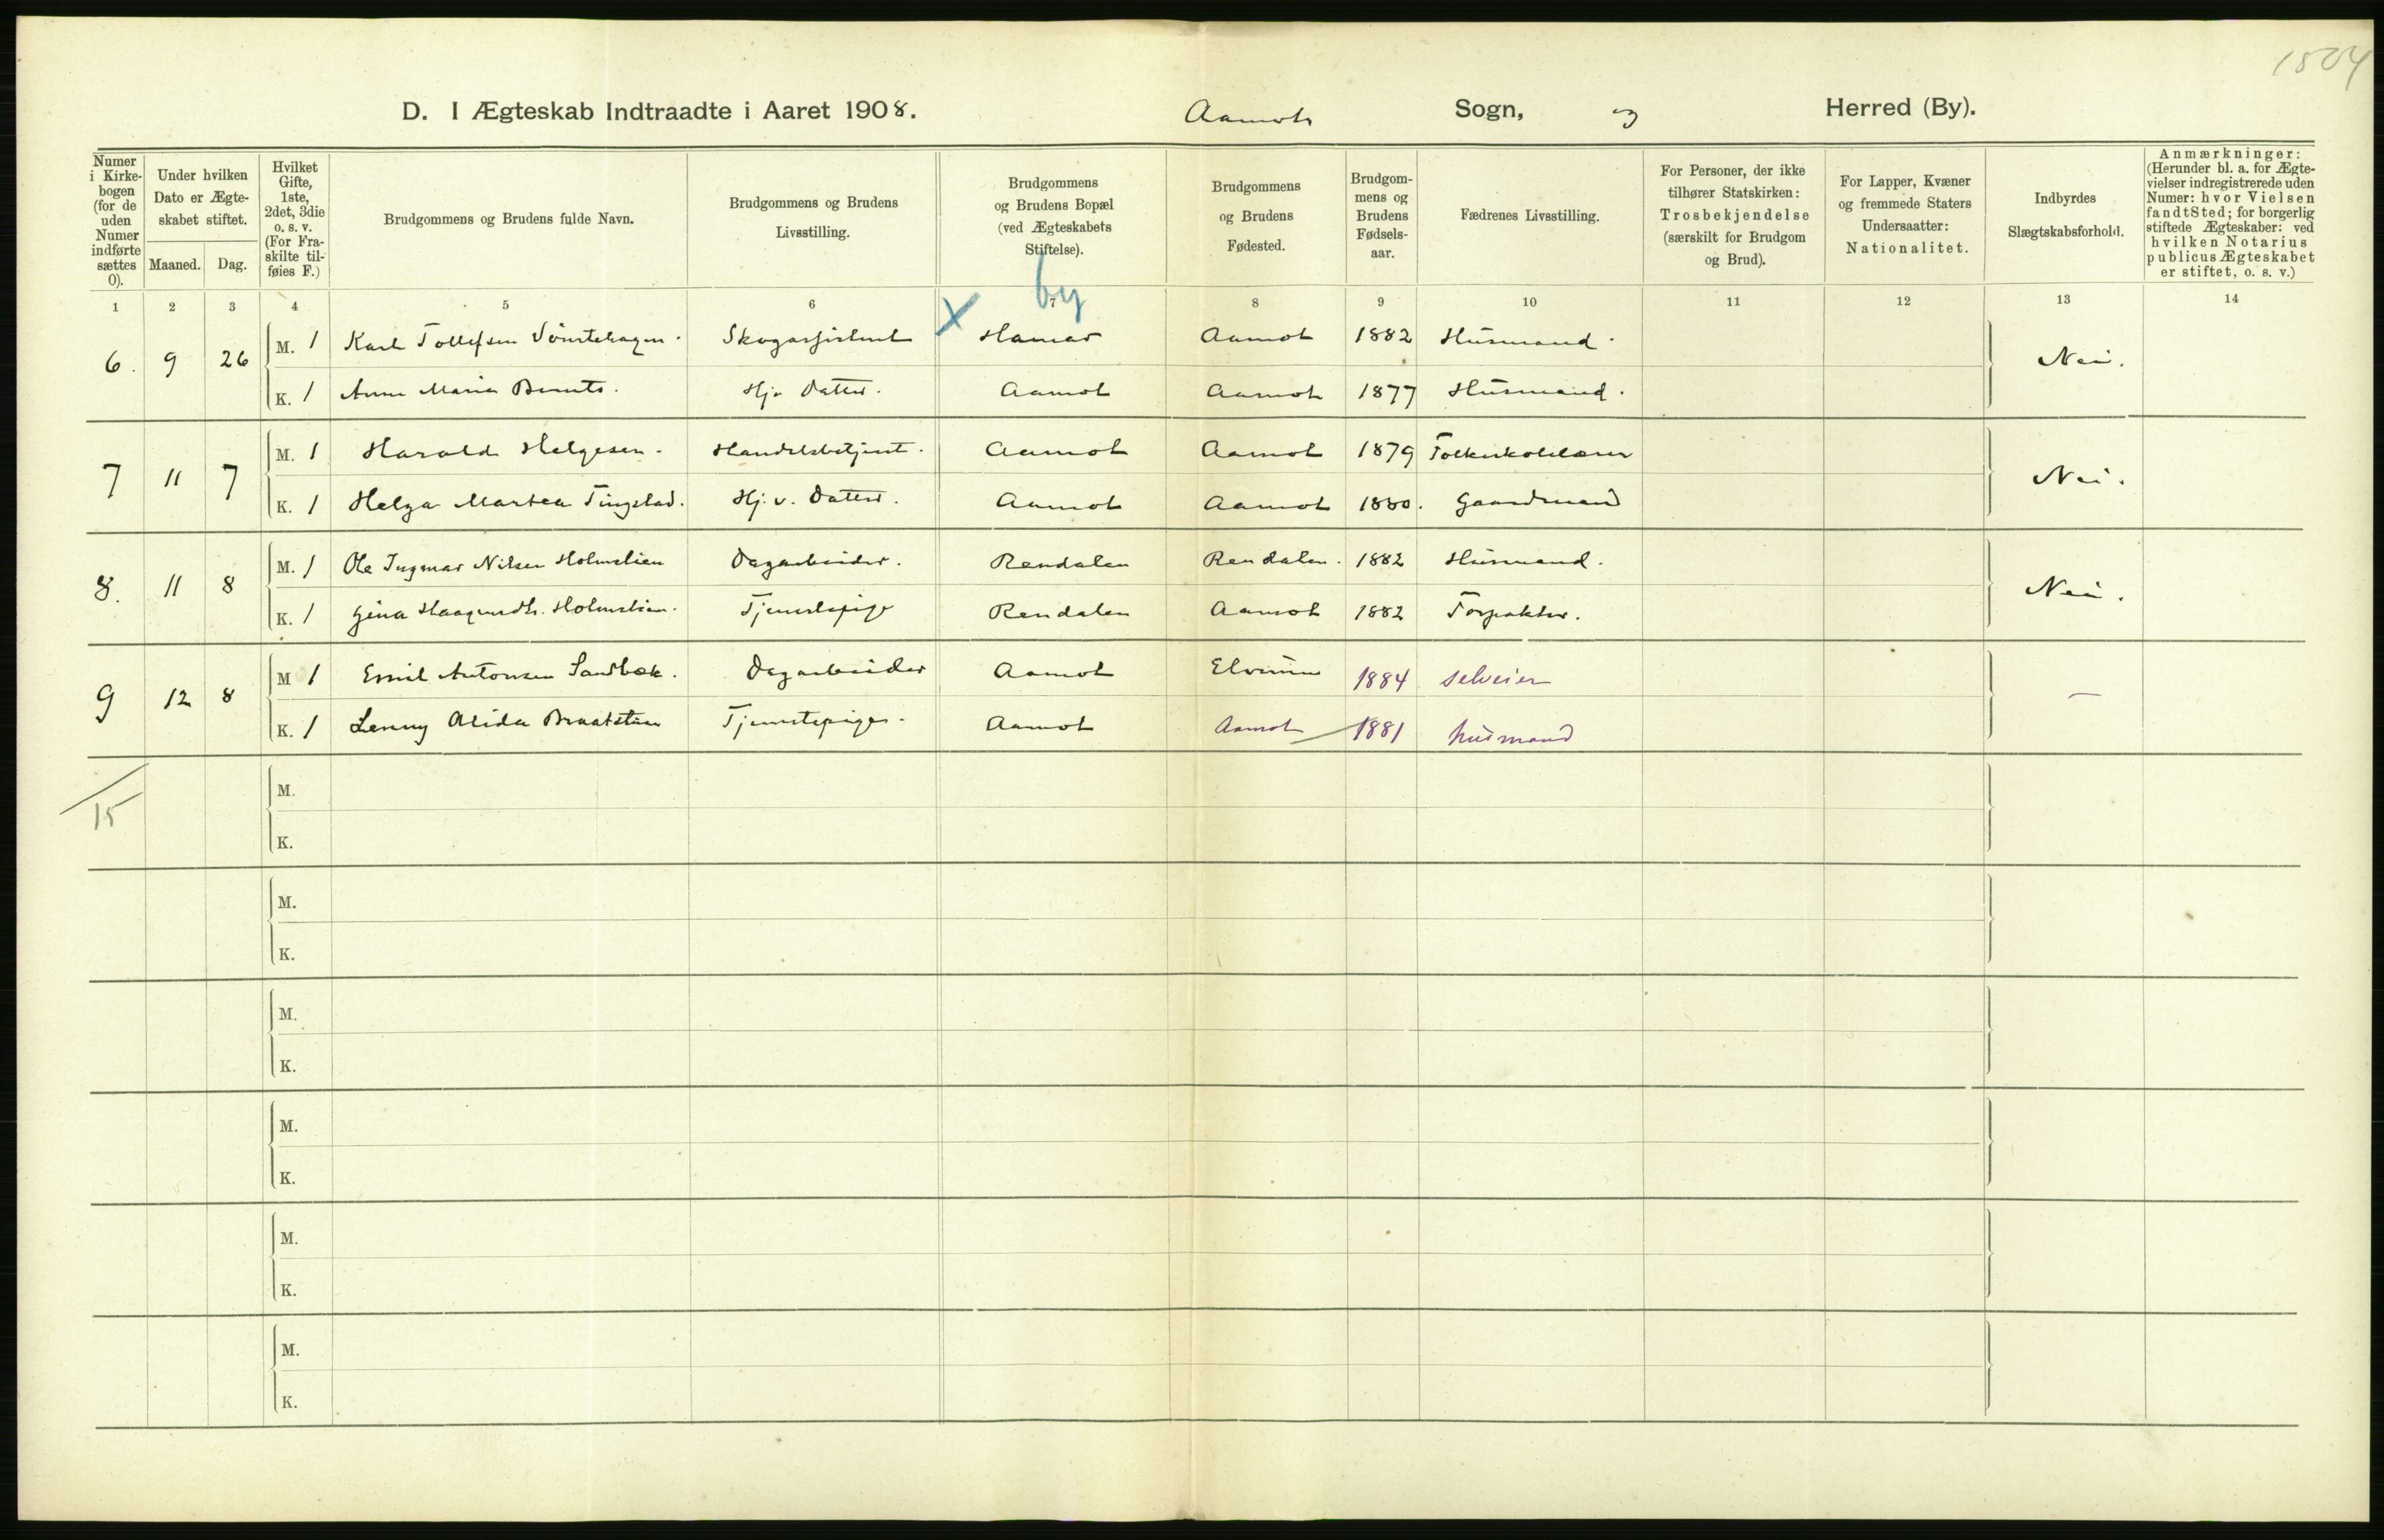 1504
D. I Ægteskab Indtraadte i Aaret 1908. Aamots Sogn, Herred (By).
Numer i Kirkebogen (for de uden Numer indførte sættes 0).
Under hvilken Dato er Ægteskabet stiftet.
Maaned. Dag.
Hvilket Gifte, 1ste, 2det, 3die o. s. v. (For Fraskilte tilføies F.)
Brudgommens og Brudens fulde Navn.
Brudgommens og Brudens Livsstilling.
Brudgommens og Brudens Bopæl (ved Ægteskabets Stiftelse).
Brudgommens og Brudens Fødested.
Brudgommens og Brudens Fødselsaar.
Fædrenes Livsstilling.
For Personer, der ikke tilhører Statskirken: Trosbekjendelse (særskilt for Brudgom og Brud).
For Lapper, Kvæner og fremmede Staters Undersaatter: Nationalitet.
Indbyrdes Slægtskabsforhold.
Anmærkninger: (Herunder bl. a. for Ægtevielser indregistrerede uden Numer: hvor Vielsen fandt Sted; for borgerlig stiftede Ægteskaber: ved hvilken Notarius publicus Ægteskabet er stiftet, o. s. v.)
1 2 3 4 5 6 7 8 9 10 11 12 13 14
by
X
6. 9 26 M. 1 Karl Tollefsen Skogassistent Hamar Aamot 1882 Husmand. Nei.
K. 1 Anne Maria Bernts. Hj. Datter. Aamot Aamot 1877 Husmand.
7 11 7 M. 1 Harald Helgesen. Handelsbetjent. Aamot Aamot 1879 Folkeskolelærer Nei.
K. 1 Helga Martea Tingstad. Hj. v. Datter. Aamot Aamot 1880. Gaardmand
8. 11 8 M. 1 Ole Ingmar Nilsen Holmslien Dagarbeider. Rendalen Rendalen. 1882 Husmand. Nei.
K. 1 Gina Haagensdtr. Holmslien. Tjenestepige Rendalen Aamot 1882 Forpakter.
9 12 8 M 1 Emil Antonsen Sandbæk. Dagarbeider Aamot Elverum 1884 selveier —
K. 1 Lenny Alida Braatstuen Tjenestepige. Aamot Aamot 1881 husmand
15
M.
K.
M.
K.
M.
K.
M.
K.
M.
K.
M.
K.